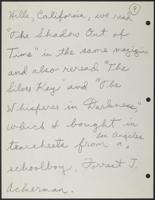 9
Hills, California, we read
"The Shadow Out of
Time" in the same magazine
and also reread "The
Silver Key" and "The
Whisperer in Darkness,"
which I bought in
Los Angeles
tearsheets from a
schoolboy, Forrest J.
Ackerman.